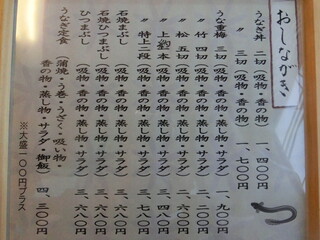 おしながき
うなぎ丼 二切(吸物・香の物) 一、四〇〇円
〃 三切(吸物・香の物) 一、七〇〇円
うな重梅 三切(吸物・香の物・蒸し物・サラダ) 一、九〇〇円
〃 竹 四切(吸物・香の物・蒸し物・サラダ) 二、二〇〇円
〃 松 五切(吸物・香の物・蒸し物・サラダ) 二、六八〇円
〃 上 (吸物・香の物・蒸し物・サラダ) 三、四八〇円
〃 特上二段(吸物・香の物・蒸し物・サラダ) 三、七八〇円
石焼まぶし (吸物・香の物・蒸し物・サラダ) 三、六八〇円
石焼ひつまぶし(吸物・香の物・蒸し物・サラダ) 三、六八〇円
ひつまぶし (吸物・香の物・蒸し物・サラダ) 三、六八〇円
うなぎ定食 (蒲焼・う巻・うざく・吸い物・
香の物・蒸し物・サラダ・御飯) 四、三〇〇円
※大盛一〇〇円プラス